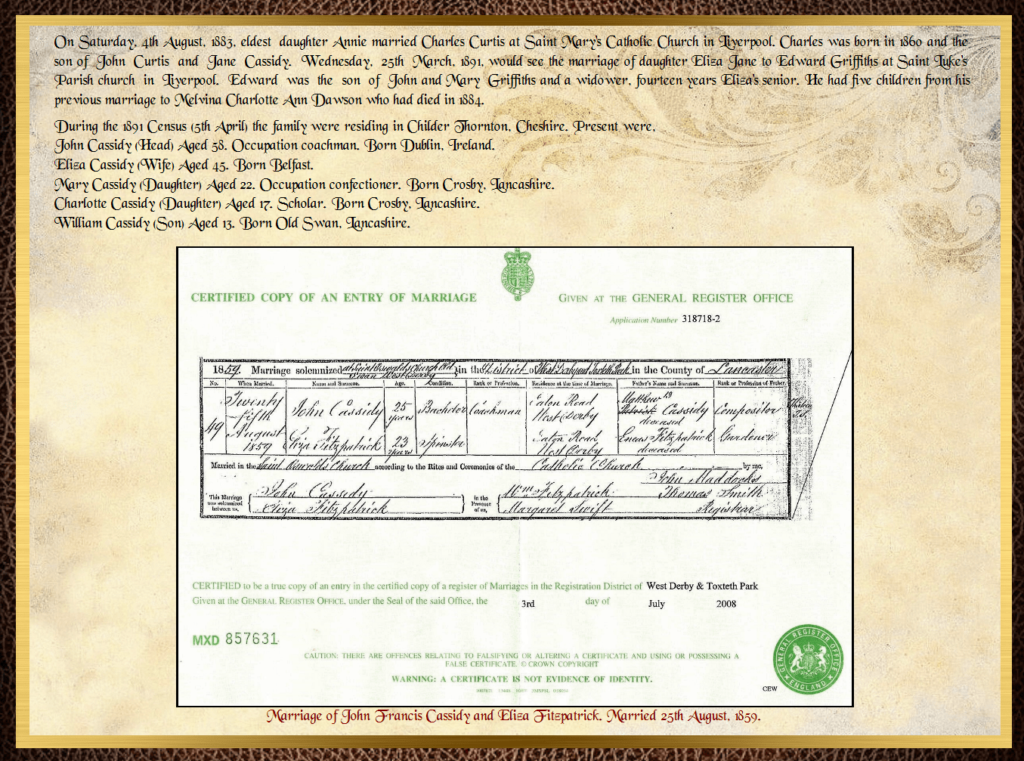 On Saturday, 4th August, 1883, eldest daughter Annie married Charles Curtis at Saint Mary's Catholic Church in Liverpool. Charles was born in 1860 and the
son of John Curtis and Jane Cassidy. Wednesday, 25th March, 1891, would see the marriage of daughter Eliza Jane to Edward Griffiths at Saint Luke's
Parish church in Liverpool. Edward was the son of John and Mary Griffiths and a widower, fourteen years Eliza's senior. He had five children from his
previous marriage to Melvina Charlotte Ann Dawson who had died in 1884.
During the 1891 Census (5th April) the family were residing in Childer Thornton, Cheshire. Present were,
John Cassidy (Head) Aged 58. Occupation coachman. Born Dublin, Ireland.
Eliza Cassidy (Wife) Aged 45. Born Belfast.
Mary Cassidy (Daughter) Aged 22. Occupation confectioner. Born Crosby, Lancashire.
Charlotte Cassidy (Daughter) Aged 17. Scholar. Born Crosby, Lancashire.
William Cassidy (Son) Aged 13. Born Old Swan, Lancashire.
CERTIFIED COPY OF AN ENTRY OF MARRIAGE
GIVEN AT THE GENERAL REGISTER OFFICE
Application Number 318718-2
1859. Marriage solemnized at Saint Oswalds Church Old Swan West Derby in the District of West Derby and Toxteth Park in the County of Lancaster
No. When Married. Name and Surname. Age. Condition. Rank or Profession. Residence at the time of Marriage. Father's Name and Surname. Rank or Profession of Father.
49 Twenty fifth August 1859
John Cassidy 25 years Bachelor Coachman Eaton Road West Derby Matthew Cassidy deceased Compositor
Eliza Fitzpatrick 23 years Spinster Eaton Road West Derby Fitzpatrick deceased Gardener
Married in the Saint Oswalds Church according to the Rites and Ceremonies of the Catholic Church by me,
John Maddocks
This Marriage was solemnized between us, John Cassidy Eliza Fitzpatrick in the Presence of us, Wm Fitzpatrick Margaret Swift
Thomas Smith
Registrar
CERTIFIED to be a true copy of an entry in the certified copy of a register of Marriages in the Registration District of West Derby & Toxteth Park
Given at the GENERAL REGISTER OFFICE, under the Seal of the said Office, the 3rd day of July 2008
MXD 857631
CAUTION: THERE ARE OFFENCES RELATING TO FALSIFYING OR ALTERING A CERTIFICATE AND USING OR POSSESSING A
FALSE CERTIFICATE. © CROWN COPYRIGHT
WARNING: A CERTIFICATE IS NOT EVIDENCE OF IDENTITY.
GENERAL REGISTER OFFICE
ENGLAND
CEW
Marriage of John Francis Cassidy and Eliza Fitzpatrick. Married 25th August, 1859.